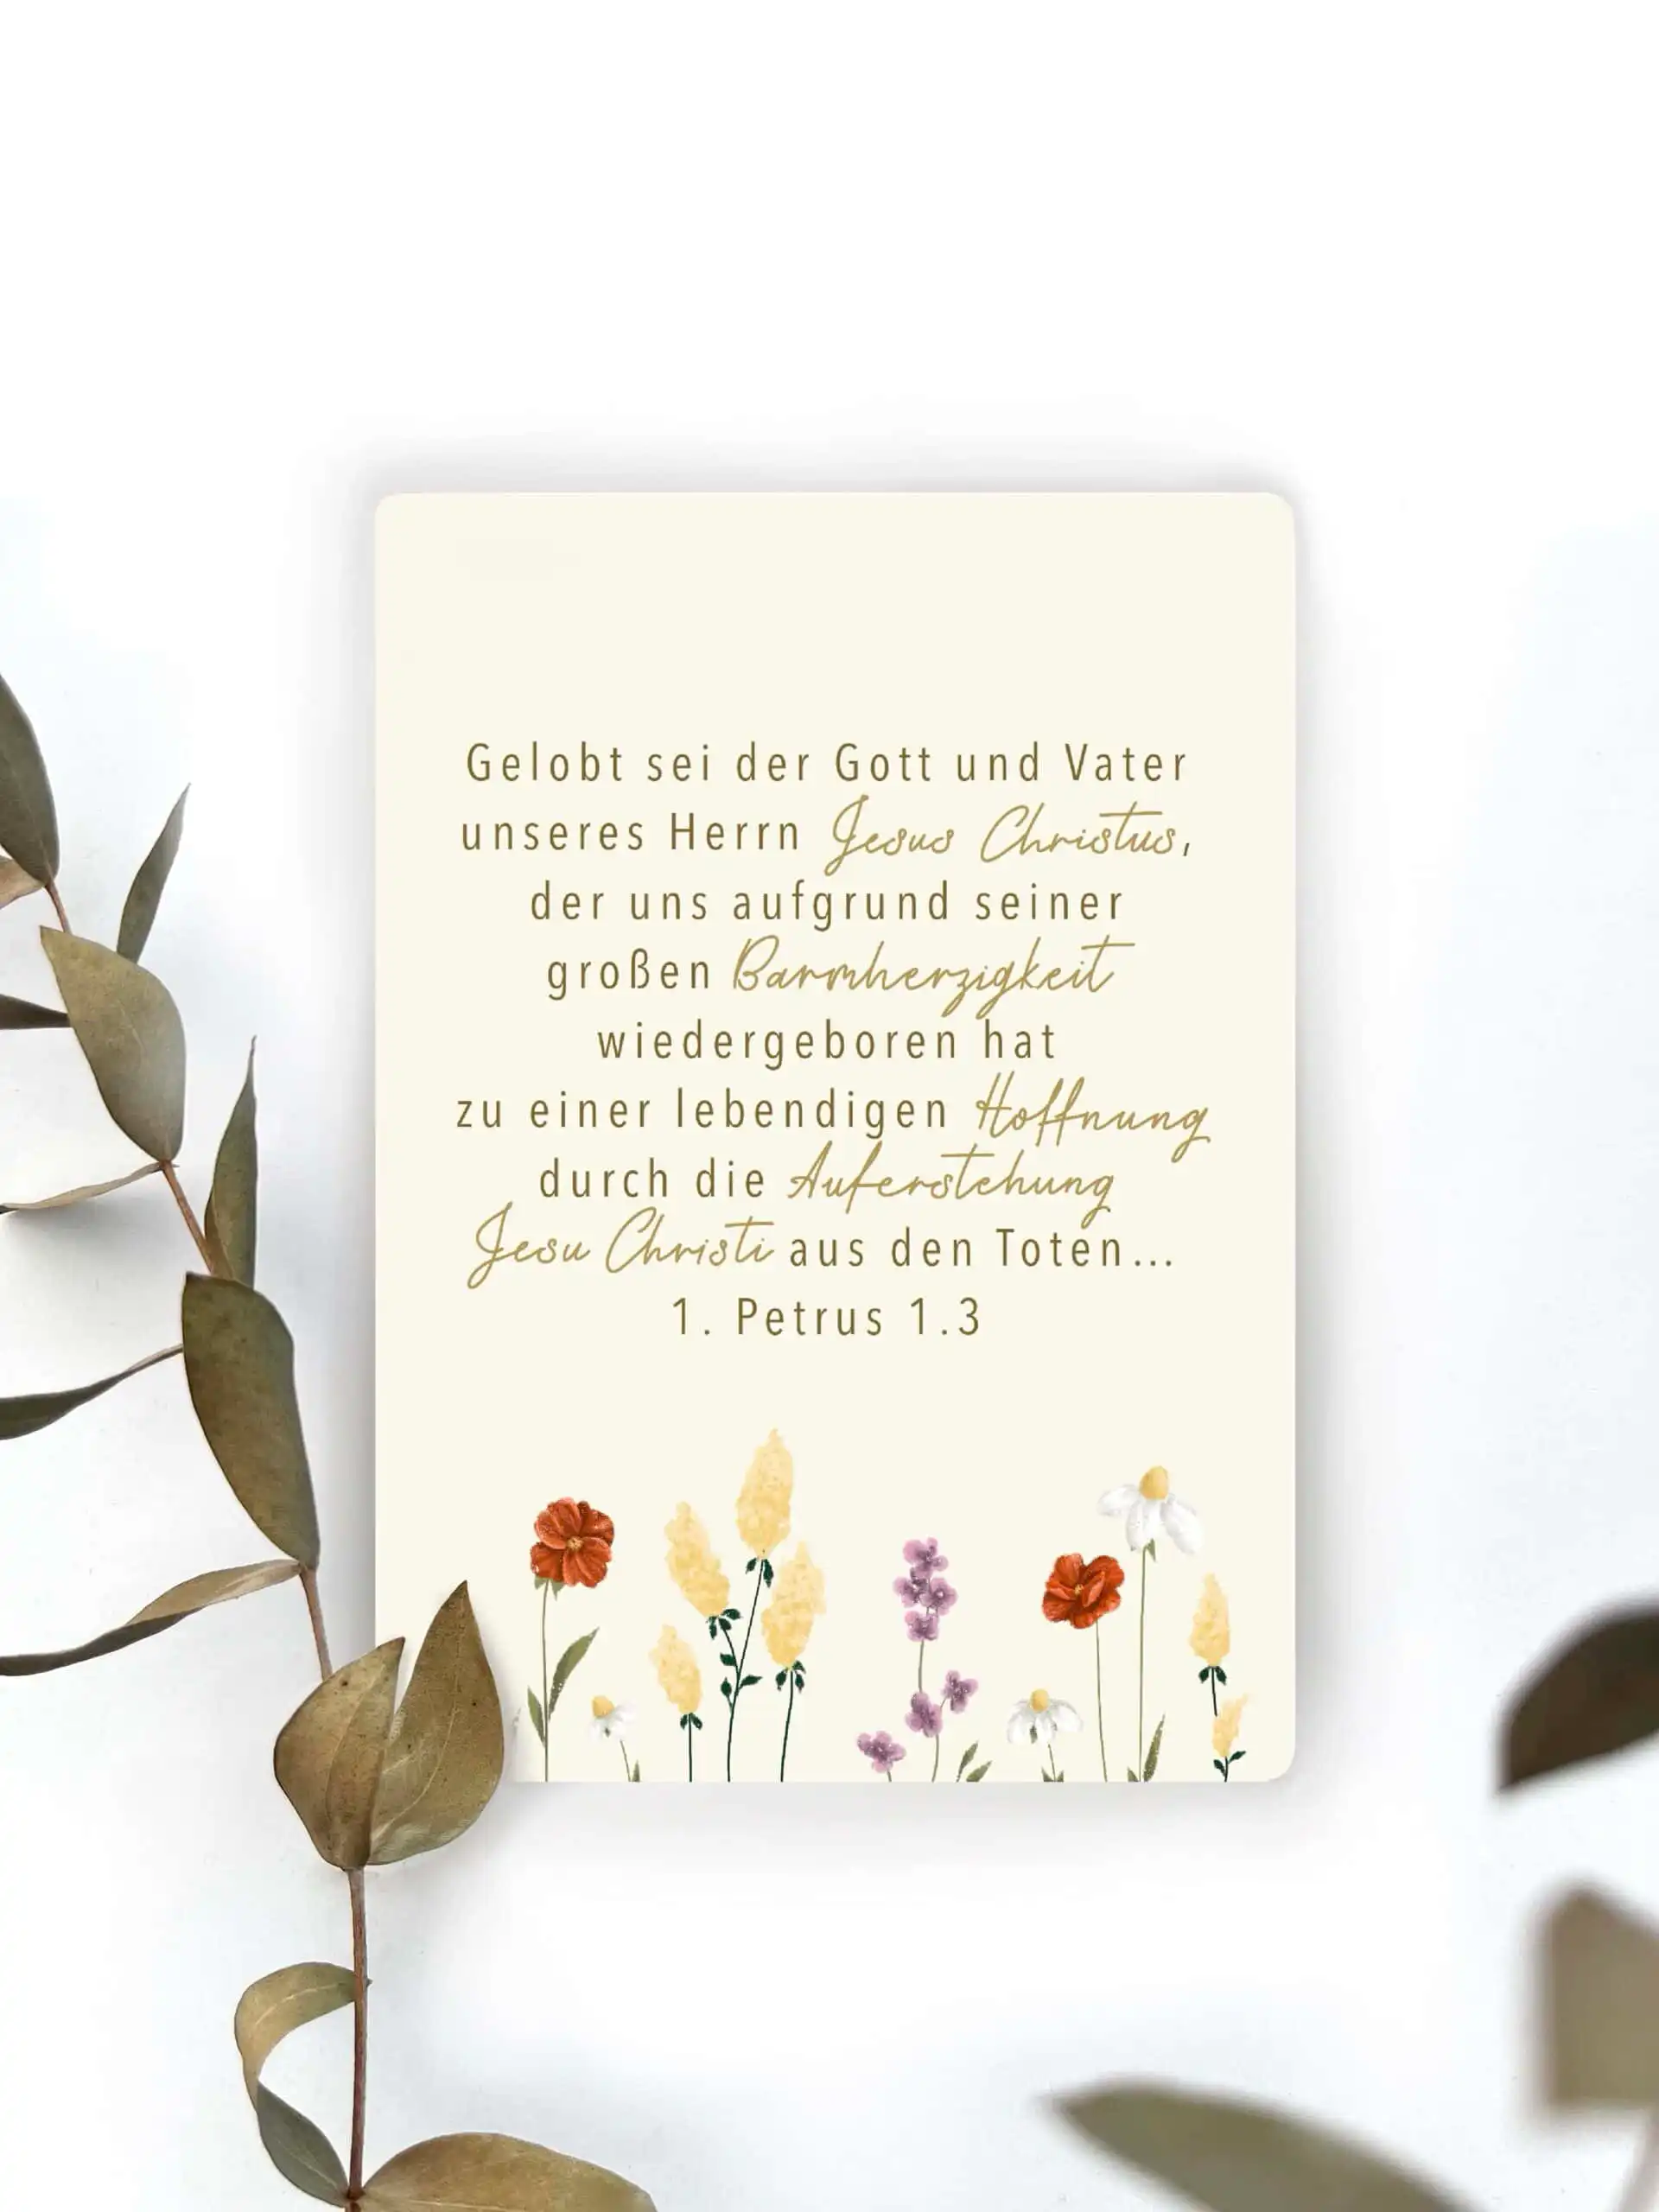 Gelobt sei der Gott und Vater
unseres Herrn Jesus Christus,
der uns aufgrund seiner
großen Barmherzigkeit
wiedergeboren hat
zu einer lebendigen Hoffnung
durch die Auferstehung
Jesu Christi aus den Toten...
1. Petrus 1.3